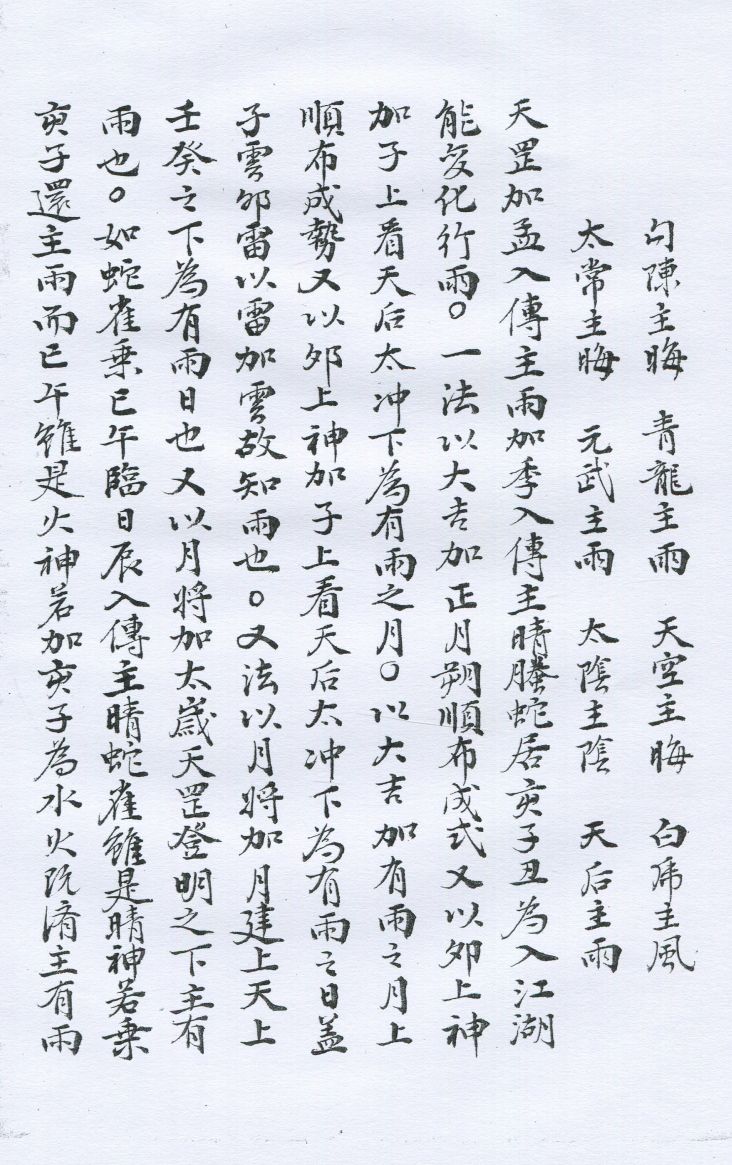 勾陳主晦　青龍主雨　天空主晦　白虎主風
太常主晦　元武主雨　太陰主陰　天后主雨
天罡加孟入傳主雨加季入傳主晴螣蛇居亥子丑為入江湖
能变化行雨。一法以大吉加正月朔順布成式又以夘上神
加子上看天后太冲下為有雨之月。以大吉加有雨之月上
順布成勢又以夘上神加子上看天后太冲下為有雨之日盖
子雲夘雷以雷加雲故知雨也。又法以月將加月建上天上
壬癸之下為有雨日也又以月將加太歲天罡登明之下主有
雨也。如蛇雀乗巳午臨日辰入傳主晴蛇雀雖是晴神若乗
亥子還主雨而巳午雖是火神若加亥子為水火既濟主有雨